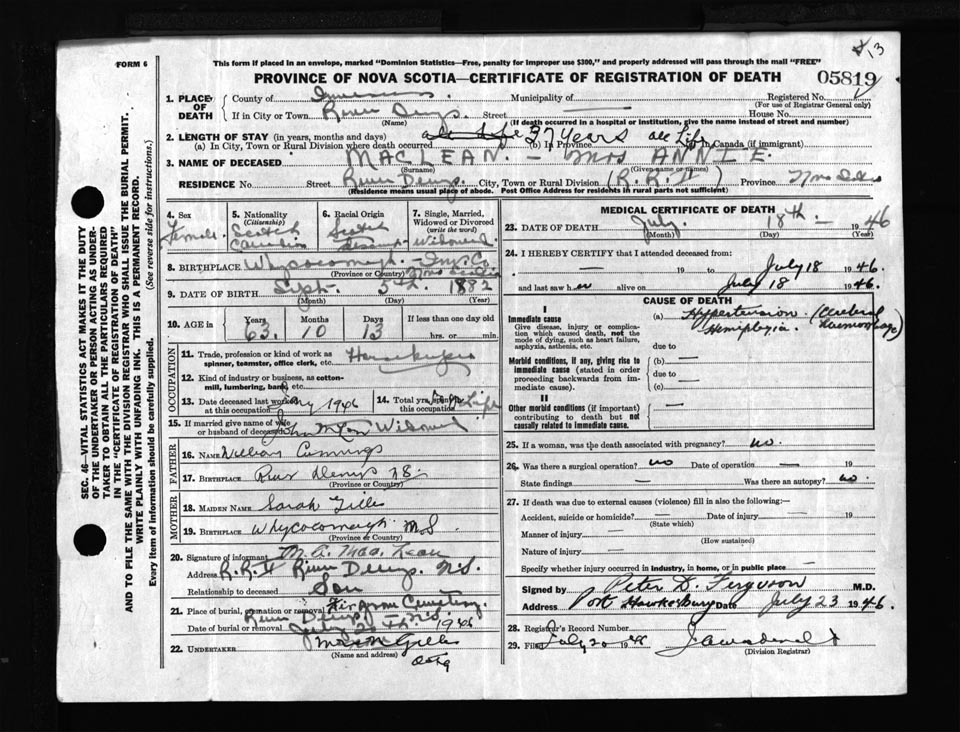 13
FORM 6
This form if placed in an envelope, marked "Dominion Statistics—Free, penalty for improper use $300," and properly addressed will pass through the mail "FREE"
PROVINCE OF NOVA SCOTIA—CERTIFICATE OF REGISTRATION OF DEATH
05819
1. PLACE OF DEATH
County of Inverness Municipality of — Registered No.
(For use of Registrar General only)
If in City or Town River Denys Street House No.
(Name) (If death occurred in a hospital or institution, give the name instead of street and number)
2. LENGTH OF STAY (in years, months and days) all life 37 Years all Life
(a) In City, Town or Rural Division where death occurred (b) In Province (c) In Canada (if immigrant)
3. NAME OF DECEASED MACLEAN. — Mrs ANNIE.
(Surname) (Given name or names)
RESIDENCE No. Street River Denys. City, Town or Rural Division (R.R.#) Province Nova Scotia
(Residence means usual place of abode. Post Office Address for residents in rural parts not sufficient)
SEC. 46—VITAL STATISTICS ACT MAKES IT THE DUTY
OF THE UNDERTAKER OR PERSON ACTING AS UNDER-
TAKER TO OBTAIN ALL THE PARTICULARS REQUIRED
IN THE "CERTIFICATE OF REGISTRATION OF DEATH"
AND TO FILE THE SAME WITH THE DIVISION REGISTRAR WHO SHALL ISSUE THE BURIAL PERMIT.
WRITE PLAINLY WITH UNFADING INK. THIS IS A PERMANENT RECORD.
Every item of information should be carefully supplied. (See reverse side for instructions.)
4. Sex Female.
5. Nationality (Citizenship) Scotch Canadian
6. Racial Origin Scotch
7. Single, Married, Widowed or Divorced (write the word) Widowed
8. BIRTHPLACE Whycocomagh — Inv. Co. Nova Scotia
(Province or Country)
9. DATE OF BIRTH Sept. 5th. 1882
(Month) (Day) (Year)
10. AGE in Years Months Days If less than one day old
63. 10 13 hrs. or min.
OCCUPATION
11. Trade, profession or kind of work as spinner, teamster, office clerk, etc. Housekeeper
12. Kind of industry or business, as cotton-mill, lumbering, bank, etc.
13. Date deceased last worked at this occupation 1946
14. Total yrs. spent in this occupation Life
15. If married give name of wife or husband of deceased John Widowed
FATHER
16. Name William Cummings
17. Birthplace River Denys NS
(Province or Country)
MOTHER
18. Maiden Name Sarah Gillis
19. Birthplace Whycocomagh. N.S.
(Province or Country)
20. Signature of informant M. A. Mac Lean
Address R.R.# River Denys. N.S.
Relationship to deceased Son
21. Place of burial, cremation or removal Cemetery.
River Denys — N.S.
Date of burial or removal July 20th. 1946
22. UNDERTAKER Gillis
(Name and address)
MEDICAL CERTIFICATE OF DEATH
23. DATE OF DEATH July. 18th — 1946
(Month) (Day) (Year)
24. I HEREBY CERTIFY that I attended deceased from:
— 19 to July 18 1946.
and last saw her alive on July 18 1946.
CAUSE OF DEATH
I
Immediate cause
Give disease, injury or complication which caused death, not the mode of dying, such as heart failure, asphyxia, asthenia, etc.
(a) Hypertension (Cerebral Haemorrhage)
Hemiplegia
due to
Morbid conditions, if any, giving rise to immediate cause (stated in order proceeding backwards from immediate cause).
(b) —
due to
(c) —
II
Other morbid conditions (if important) contributing to death but not causally related to immediate cause.
—
25. If a woman, was the death associated with pregnancy? no.
26. Was there a surgical operation? no Date of operation — 19
State findings — Was there an autopsy? no
27. If death was due to external causes (violence) fill in also the following:-
Accident, suicide or homicide? — Date of injury — 19
(State which)
Manner of injury —
(How sustained)
Nature of injury —
Specify whether injury occurred in industry, in home, or in public place —
Signed by Peter D. Ferguson M.D.
Address Port Hawkesbury Date July 23 1946.
28. Registrar's Record Number
29. Filed July 20 1946
(Division Registrar)